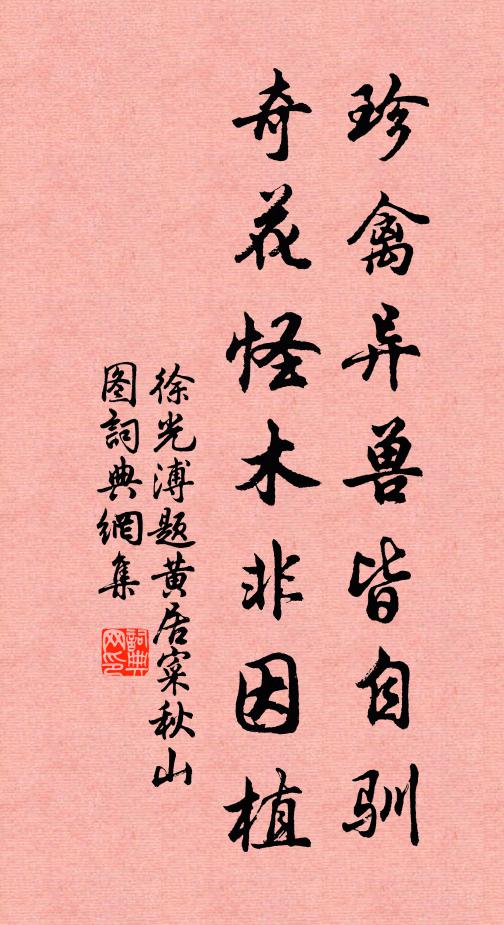 珍禽异兽皆自驯
奇花怪木非因植
徐光溥题黄居寀秋山
图詞典網集
詞典
网印